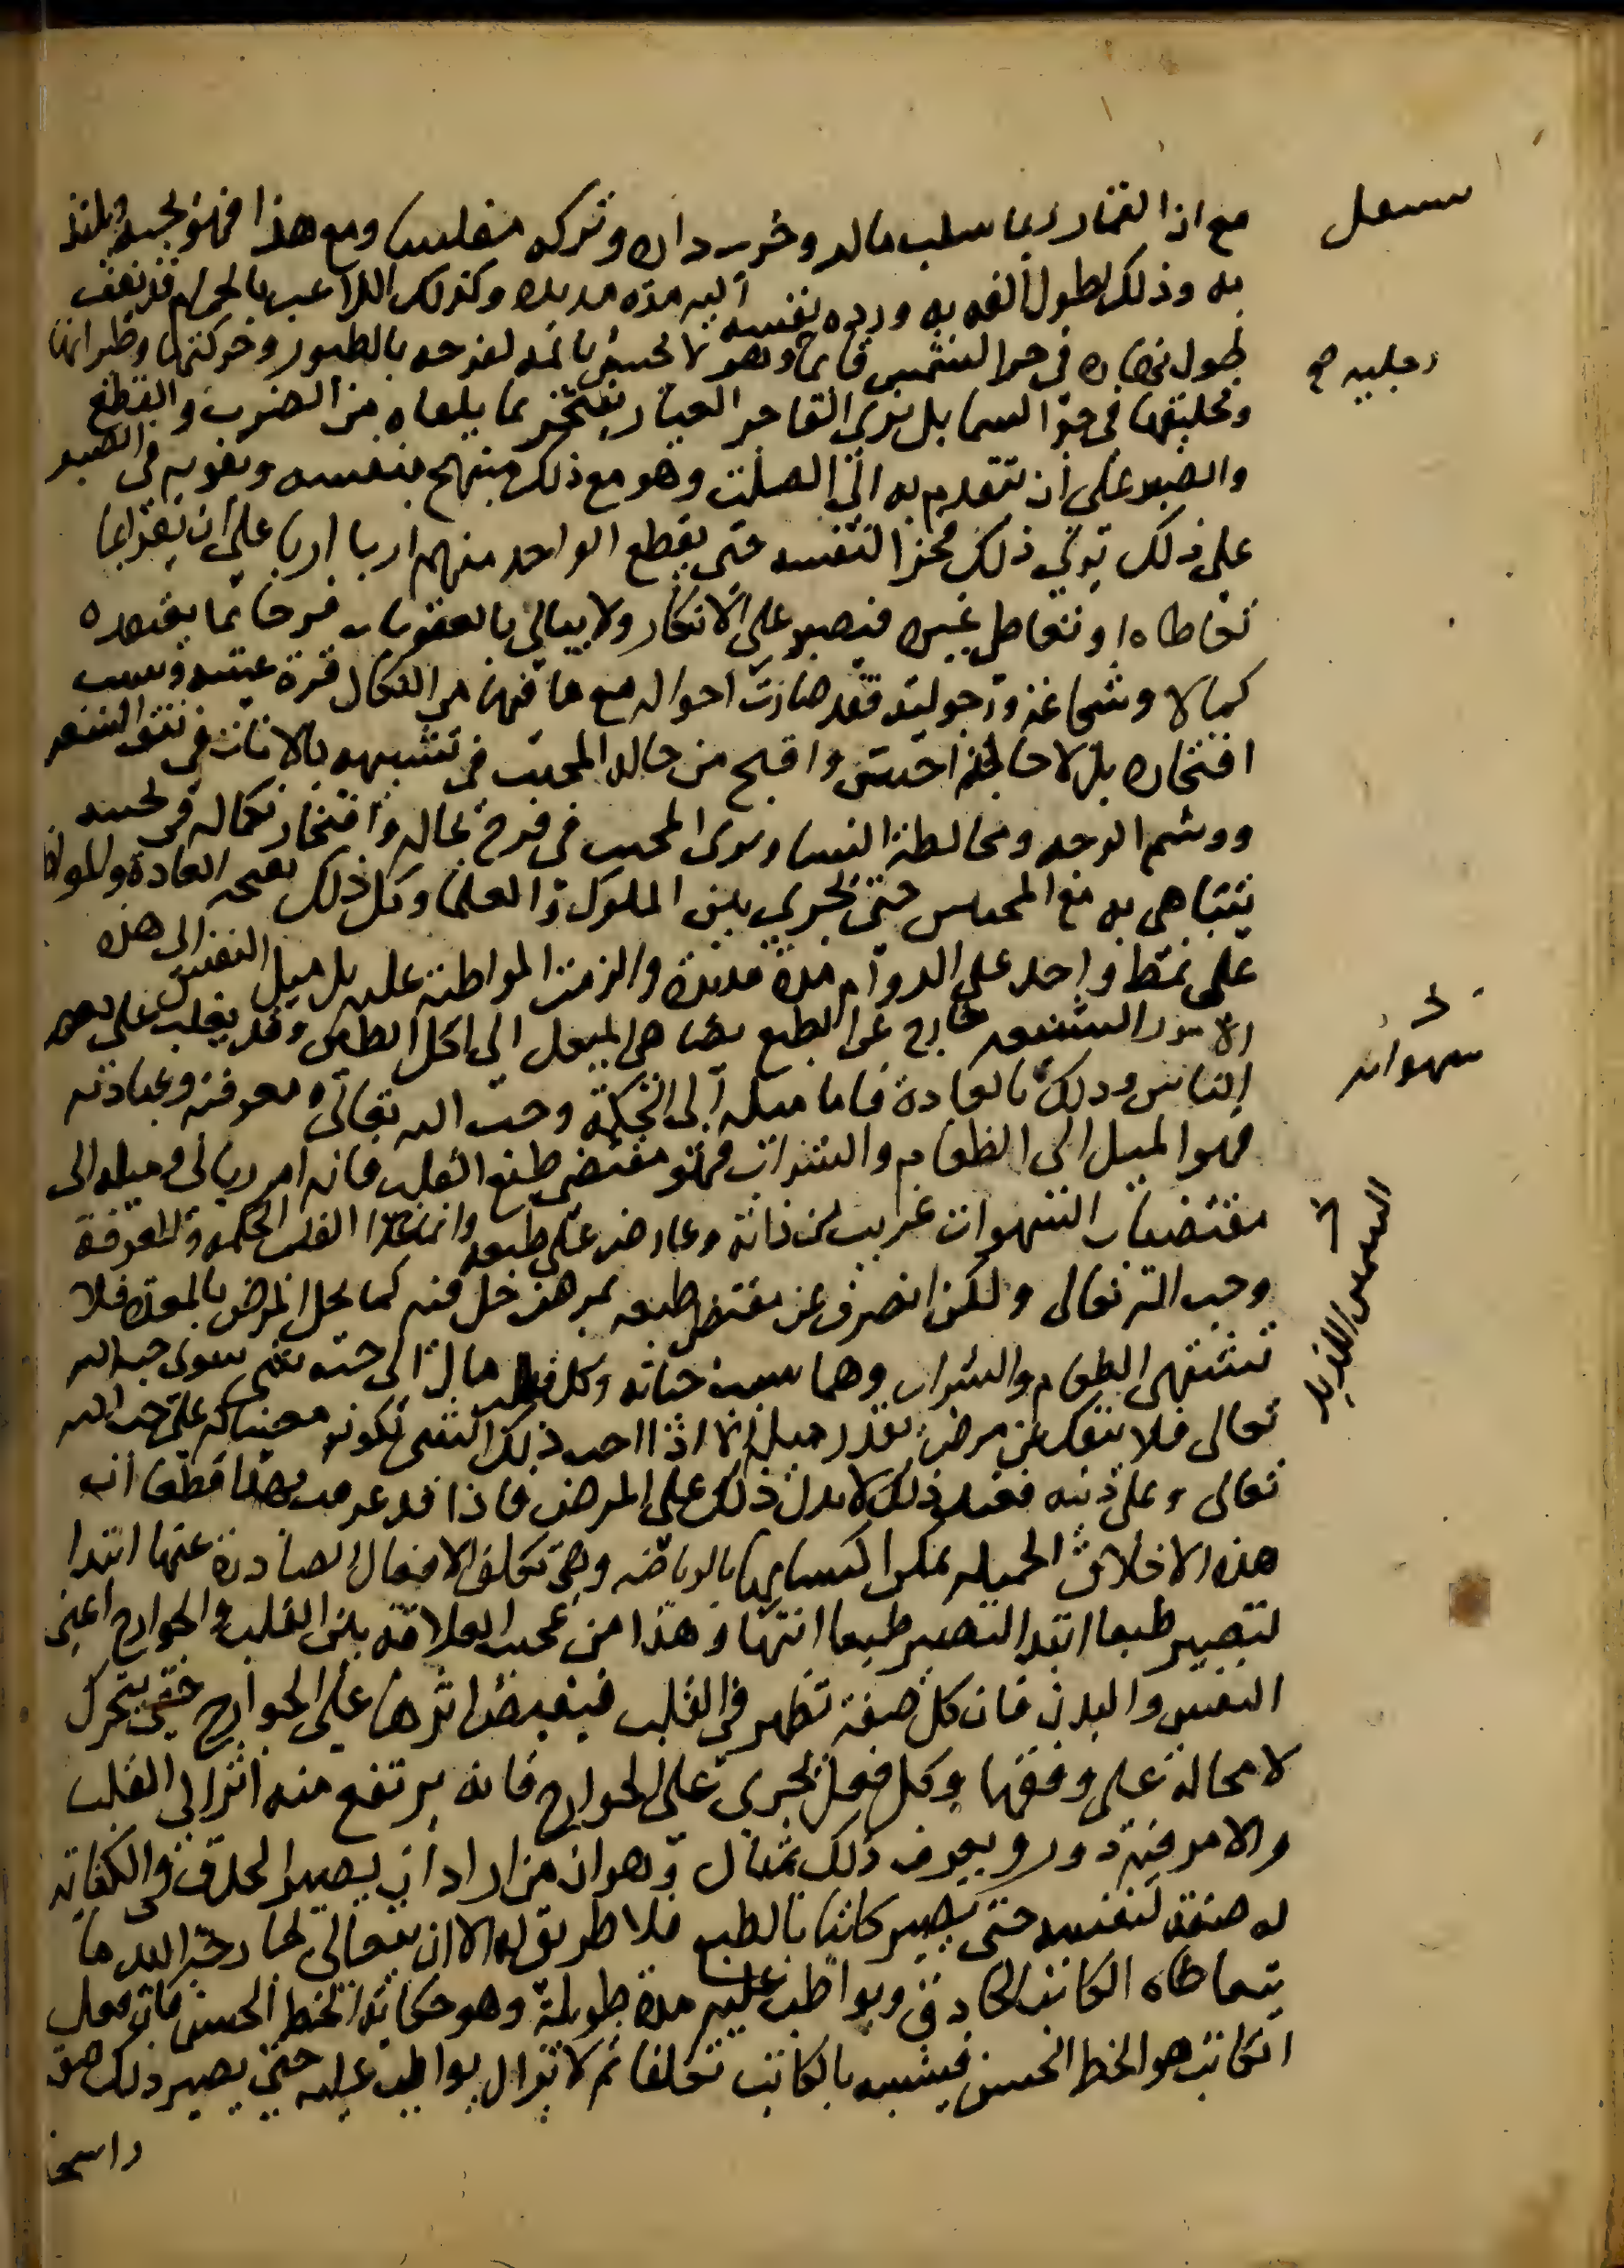 مع ان القمار ربما سلب ماله وخرب داره وتركه مفلسا ومع هذا فهو يحبه ويلتذ
به وذلك لطول الفه به ورده نفسه اليه مدة مديدة وكذلك اللاعب بالحمام قد يقف
طول نهاره في حر الشمس قايما وهو لا يحس بألمه لفرحه بالطيور وحركتها وطيرانها
وتحليقها في جو السما بل نرى الفاجر العيار يفتخر بما يلقاه من الضرب والقطع
والصبر على ان يتقدم به الى الصلب وهو مع ذلك متبجح بنفسه وبقوته في الصبر
على ذلك يرى ذلك فخرا لنفسه حتى يقطع الواحد منهم اربا اربا على ان يقر بما
تعاطاه او تعاطى غيره فيصبر على الانكار ولا يبالي بالعقوبات فرحا بما يعتقده
كمالا وشجاعة ورجولية فقد صارت احواله مع ما فيها من النكال قرة عينه وسبب
افتخاره بل لا حالة اخس واقبح من حال المخنث في تشبهه بالاناث في نتف الشعر
ووشم الوجه ومخالطة النسا وترى المخنث في فرح بحاله وافتخار بكماله في تخنثه
يتباهى به مع المخنثين حتى يجري بين الملوك والعلما وكل ذلك نتيجة العادة والمواظبة
على نمط واحد على الدوام مدة مديدة والزمت المواظبة عليه بل ميل النفس الى هذه
الامور الشنيعة خارج عن الطبع يضاهي الميل الى اكل الطين وقد يغلب على بعض
الناس وذلك بالعادة فاما ميله الى الحكمة وحب الله تعالى ومعرفته وعبادته
فهو الميل الى الطعام والشراب فهو مقتضى طبع القلب فانه امر رباني وميله الى
مقتضيات الشهوات غريب من ذاته وعارض على طبعه وانما غذا القلب الحكمة والمعرفة
وحب الله تعالى ولكن انصرف عن مقتضى طبعه بمرض حل فيه كما يحل المرض بالمعدة فلا
تشتهي الطعام والشراب وهما سبب حياته وكل قلب مال الى حب شي سوى حب الله
تعالى فلا ينفك عن مرض بقدر ميله الا اذا احب ذلك الشي لكونه معينا له على حب الله
تعالى وعلى دينه فعند ذلك لا يدل ذلك على المرض فاذا قد عرفت بهذا قطعا ان
هذه الاخلاق الجميلة يمكن اكتسابها بالرياضة وهي تكلف الافعال الصادرة عنها ابتدا
لتصير طبعا ابتدا لتصير طبعا انتها وهذا من عجيب العلاقة بين القلب والجوارح اعني
النفس والبدن فان كل صفة تظهر في القلب فيفيض اثرها على الجوارح حتى يتحرك
لا محالة على وفقها وكل فعل يجري على الجوارح فانه يرتفع منه اثر الى القلب
والامر فيه دور ويعرف ذلك بمثال وهو ان من اراد ان يصير الحذق في الكتابة
له صفة لنفسه حتى يصير كاتبا بالطبع فلا طريق له الا ان يتعاطى بجارحة اليد ما
يتعاطاه الكاتب الحاذق ويواظب عليه مدة طويلة وهو حكاية الخط الحسن فان فعل
الكاتب هو الخط الحسن فيتشبه بالكاتب تكلفا ثم لا يزال يواظب عليه حتى يصير ذلك صفة
راسخا